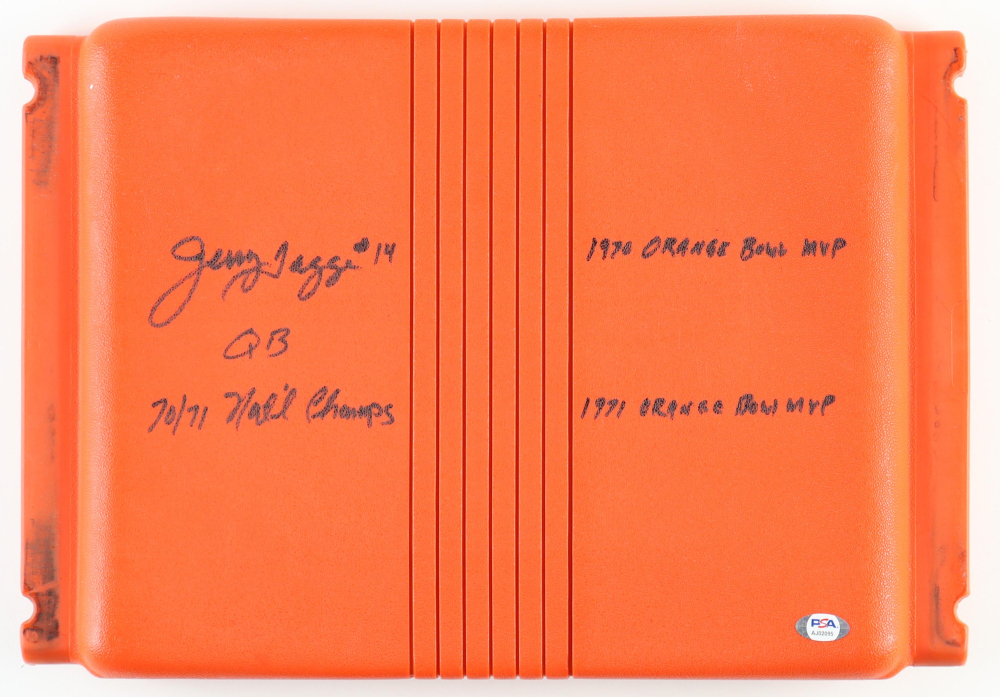 Jerry Tagge #14
QB
70/71 Nat'l Champs
1970 ORANGE BOWL MVP
1971 ORANGE BOWL MVP
PSA
AJ02095